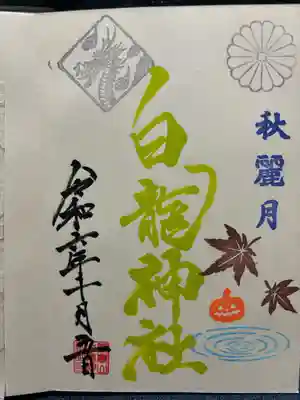 秋麗月
白龍神社
令和六年十一月一日